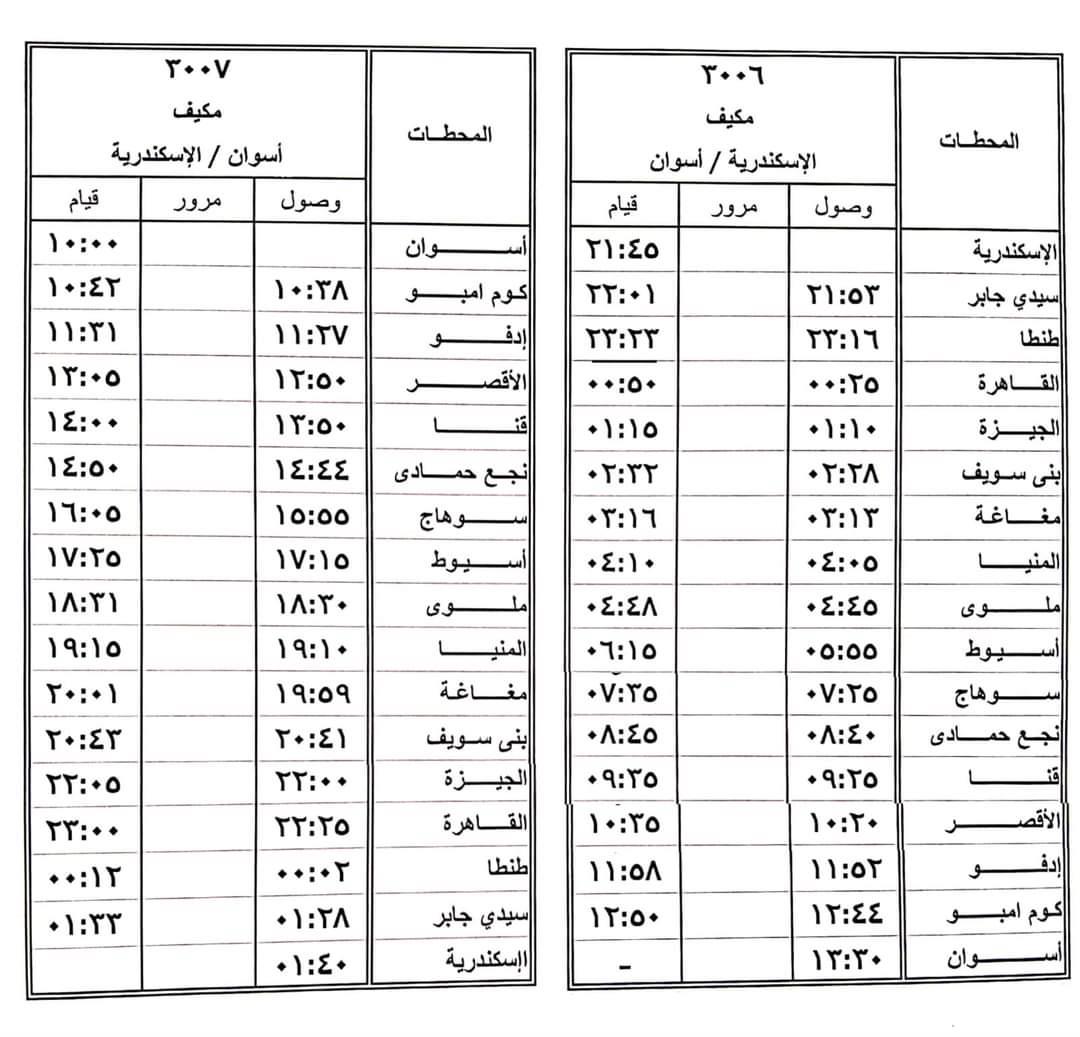 ٣٠٠٦
مكيف
المحطات
الإسكندرية / أسوان
وصول مرور قيام
الإسكندرية ٢١:٤٥
سيدي جابر ٢١:٥٣ ٢٢:٠١
طنطا ٢٣:١٦ ٢٣:٢٣
القاهرة ٠٠:٢٥ ٠٠:٥٠
الجيزة ٠١:١٠ ٠١:١٥
بنى سويف ٠٢:٢٨ ٠٢:٣٢
مغاغة ٠٣:١٣ ٠٣:١٦
المنيا ٠٤:٠٥ ٠٤:١٠
ملوى ٠٤:٤٥ ٠٤:٤٨
أسيوط ٠٥:٥٥ ٠٦:١٥
سوهاج ٠٧:٢٥ ٠٧:٣٥
نجع حمادى ٠٨:٤٠ ٠٨:٤٥
قنا ٠٩:٢٥ ٠٩:٣٥
الأقصر ١٠:٢٠ ١٠:٣٥
إدفو ١١:٥٢ ١١:٥٨
كوم امبو ١٢:٤٤ ١٢:٥٠
أسوان ١٣:٣٠ –
٣٠٠٧
مكيف
المحطات
أسوان / الإسكندرية
وصول مرور قيام
أسوان ١٠:٠٠
كوم امبو ١٠:٣٨ ١٠:٤٢
إدفو ١١:٢٧ ١١:٣١
الأقصر ١٢:٥٠ ١٣:٠٥
قنا ١٣:٥٠ ١٤:٠٠
نجع حمادى ١٤:٤٤ ١٤:٥٠
سوهاج ١٥:٥٥ ١٦:٠٥
أسيوط ١٧:١٥ ١٧:٢٥
ملوى ١٨:٣٠ ١٨:٣١
المنيا ١٩:١٠ ١٩:١٥
مغاغة ١٩:٥٩ ٢٠:٠١
بنى سويف ٢٠:٤١ ٢٠:٤٣
الجيزة ٢٢:٠٠ ٢٢:٠٥
القاهرة ٢٢:٢٥ ٢٣:٠٠
طنطا ٠٠:٠٢ ٠٠:١٢
سيدي جابر ٠١:٢٨ ٠١:٣٣
اإسكندرية ٠١:٤٠